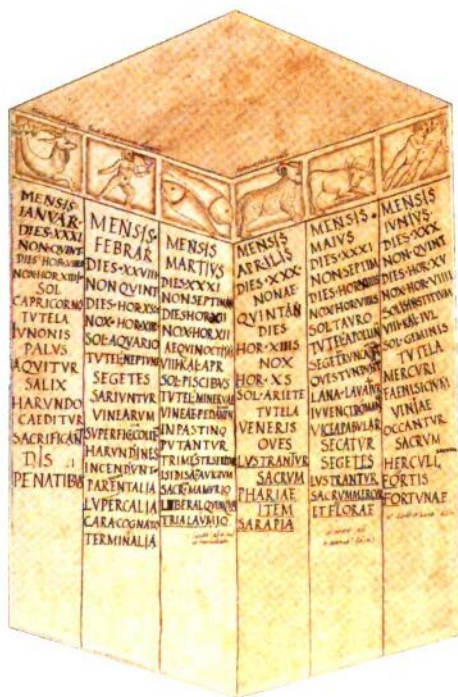 MENSIS
IANVAR
DIES·XXXI
NON·QVINT
DIES HOR·VIIII
NOX·HOR·XIIII
SOL
CAPRICORNO
TVTELA
IVNONIS
PALVS
AQVITVR
SALIX
HARVNDO
CAEDITVR
SACRIFICAN
DIS
PENATIBVS
MENSIS·
FEBRAR
DIES·XXVIII
NON·QVINT
DIES·HOR·XS
NOX·HOR·XIII
SOL·AQVARIO
TVTEL·NEPTVNI
SEGETES
SARIVNTVR
VINEARVM
SVPERFIC·COLIT
HARVNDINES
INCENDVNT
PARENTALIA
LVPERCALIA
CARA COGNATIO
TERMINALIA
MENSIS
MARTIVS
DIES·XXXI
NON·SEPTIMAN
DIES HOR XII
NOX·HOR·XII
AEQVINOCTIVM
VIII·KAL·APR
SOL·PISCIBVS
TVTEL·MINERVAE
VINEAE
IN PASTINO
PVTANTVR
TRIMESTR
ISIDIS·NAVIGIVM
SACR·MAMVRIO
LIBERAL·QVINQVA
TRIA·LAVATIO
MENSIS
APRILIS
DIES·XXX·
NONAE·
QVINTAN
DIES
HOR·XIII
NOX
HOR·XS
SOL·ARIETE
TVTELA
VENERIS
OVES
LVSTRANTVR
SACRVM
PHARIAE
ITEM
SARAPIA
MENSIS·
MAIVS
DIES·XXXI
NON·SEPTIM
DIES·HOR
NOX·HOR·VIIIIS
SOL·TAVRO
TVTEL·APOLLIN
SEGET·RVNCANT
OVES·TVNDVNT
LANA·LAVATVR
IVVENCI·DOMAN
VICEA·PABVLAR
SECATVR
SEGETES
LVSTRANTVR
SACRVM·MERCVR
ET·FLORAE
MENSIS
IVNIVS·
DIES·XXX
NON·QVINT
DIES·HOR·XV
NOX·HOR·VIIII
SOLIS·INSTITIVM
VIII·KAL·IVL
SOL·GEMINIS
TVTELA
MERCVRI
FAENISICIVM
VINIAE
OCCANTVR
SACRVM
HERCVLI
FORTIS
FORTVNAE